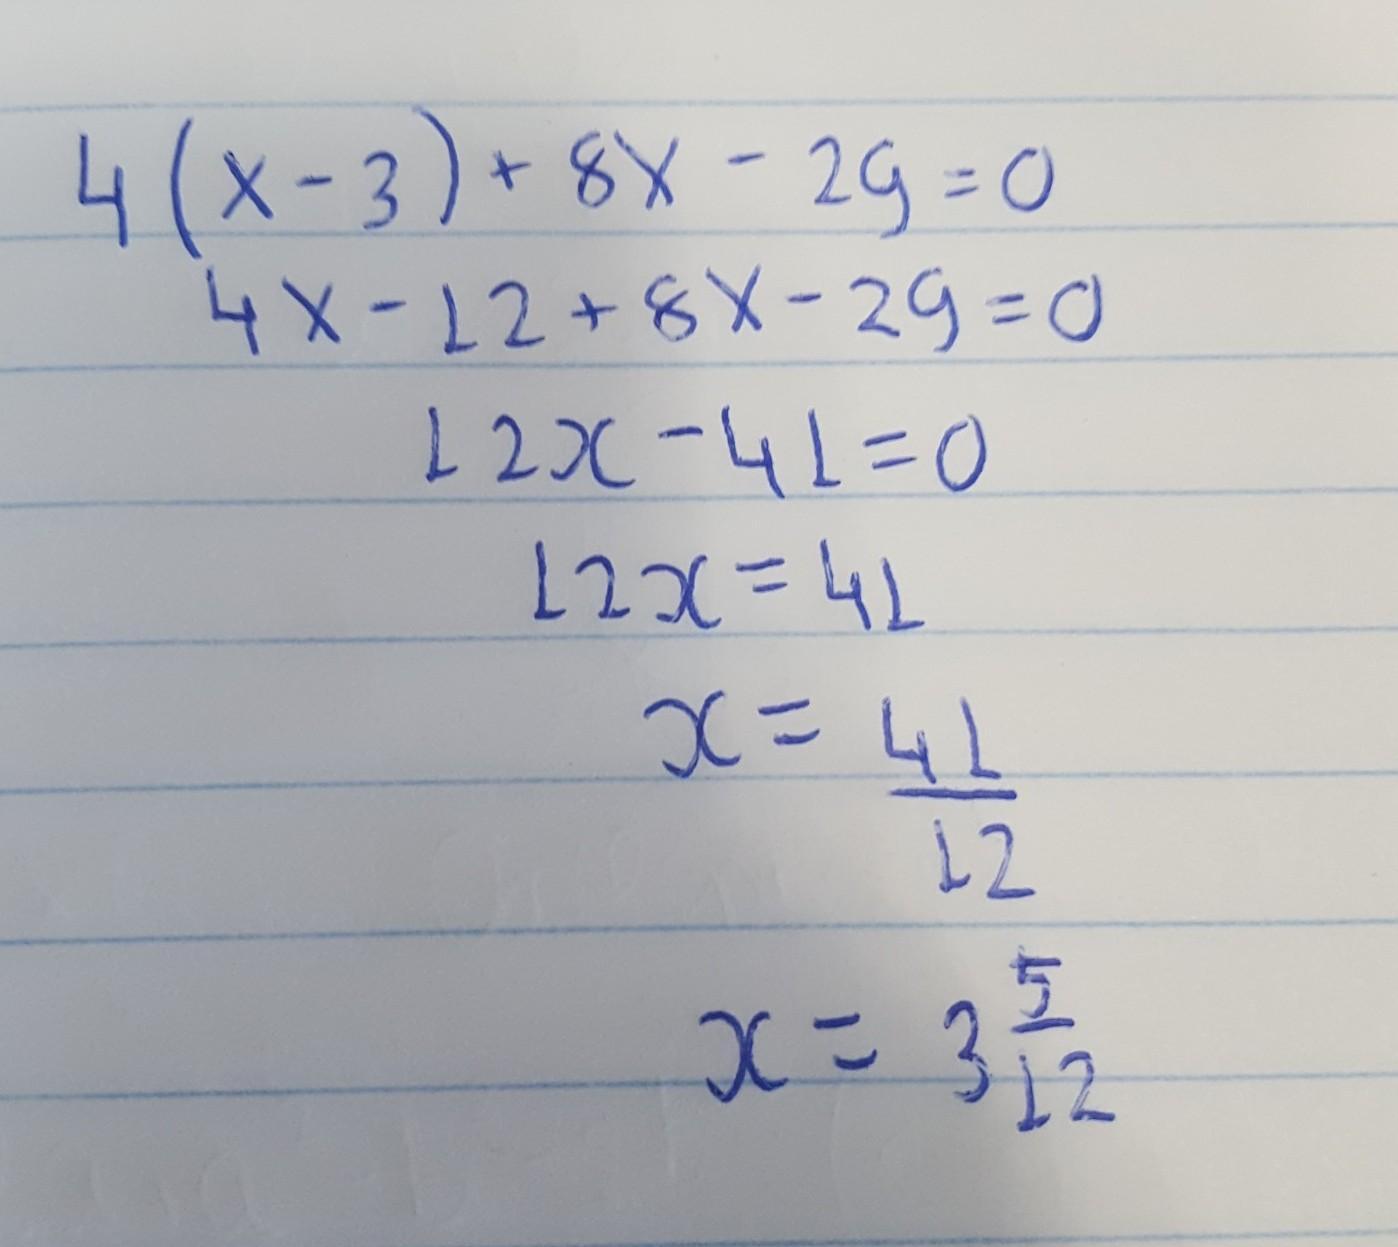 4(x-3)+8x-29=0
4x-12+8x-29=0
12x-41=0
12x=41
x=41/12
x=3 5/12